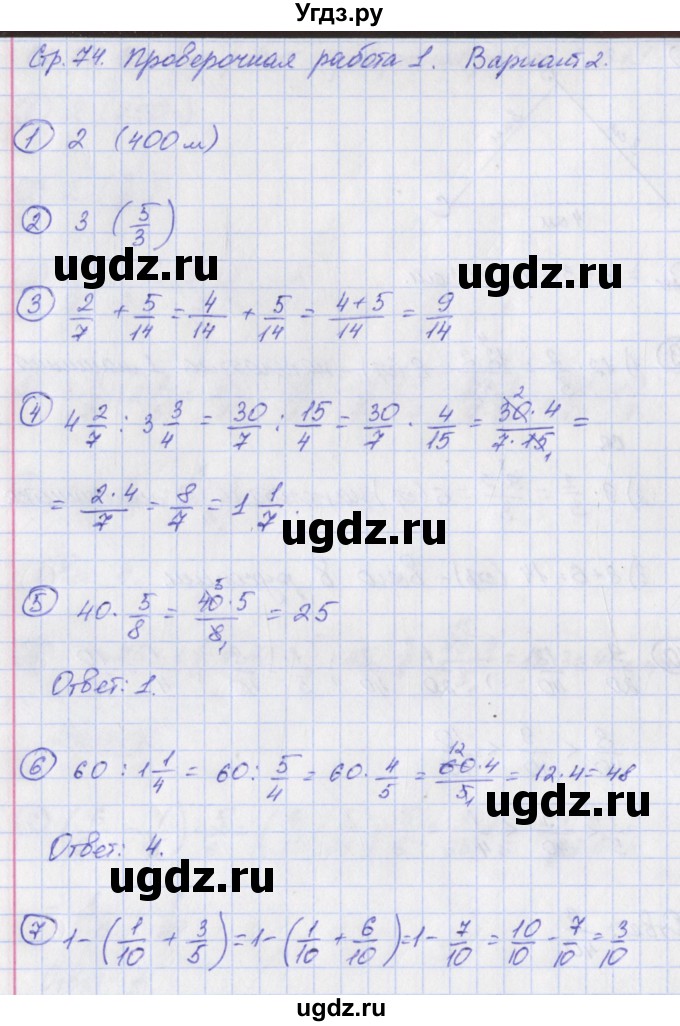 Угдз.ру
Стр. 74. Проверочная работа 1. Вариант 2.
① 2 (400 м)
② 3 (5/3)
ugdz.ru ugdz.ru
③ 2/7 + 5/14 = 4/14 + 5/14 = (4+5)/14 = 9/14
④ 4 2/7 : 3 3/4 = 30/7 : 15/4 = 30/7 · 4/15 = (30·4)/(7·15) = 2 1
= (2·4)/7 = 8/7 = 1 1/7.
ugdz.ru ugdz.ru
⑤ 40 · 5/8 = (40·5)/8 = 25 5 1
Ответ: 1.
⑥ 60 : 1 1/4 = 60 : 5/4 = 60 · 4/5 = (60·4)/5 = 12·4 = 48 12 1
ugdz.ru
Ответ: 4.
ugdz.ru
⑦ 1 - (1/10 + 3/5) = 1 - (1/10 + 6/10) = 1 - 7/10 = 10/10 - 7/10 = 3/10
ugdz.ru